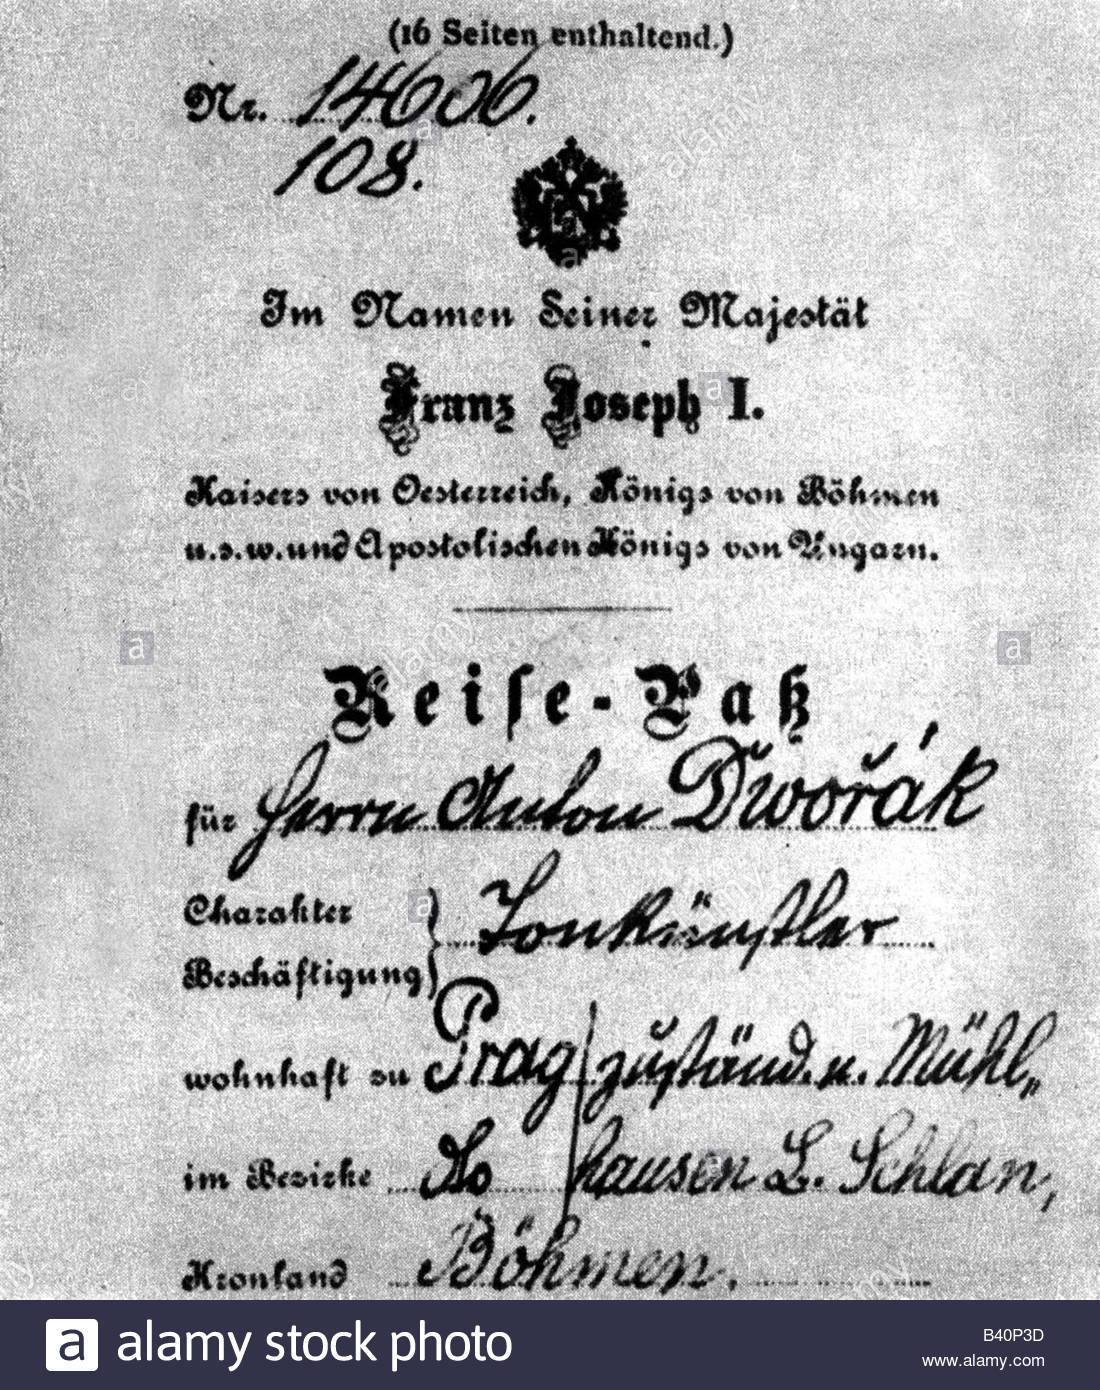 (16 Seiten enthaltend.)
Nr. 14606.
108.
Im Namen Seiner Majestät
Franz Joseph I.
Kaisers von Oesterreich, Königs von Böhmen
u.s.w. und Apostolischen Königs von Ungarn.
Reise-Paß
für Herrn Anton Dwořák
Charakter
Beschäftigung } Tonkünstler
wohnhaft zu Prag / zuständ. n. Mühl„
im Bezirke / hausen L. Schlan,
Kronland Böhmen.
alamy stock photo
B40P3D
www.alamy.com